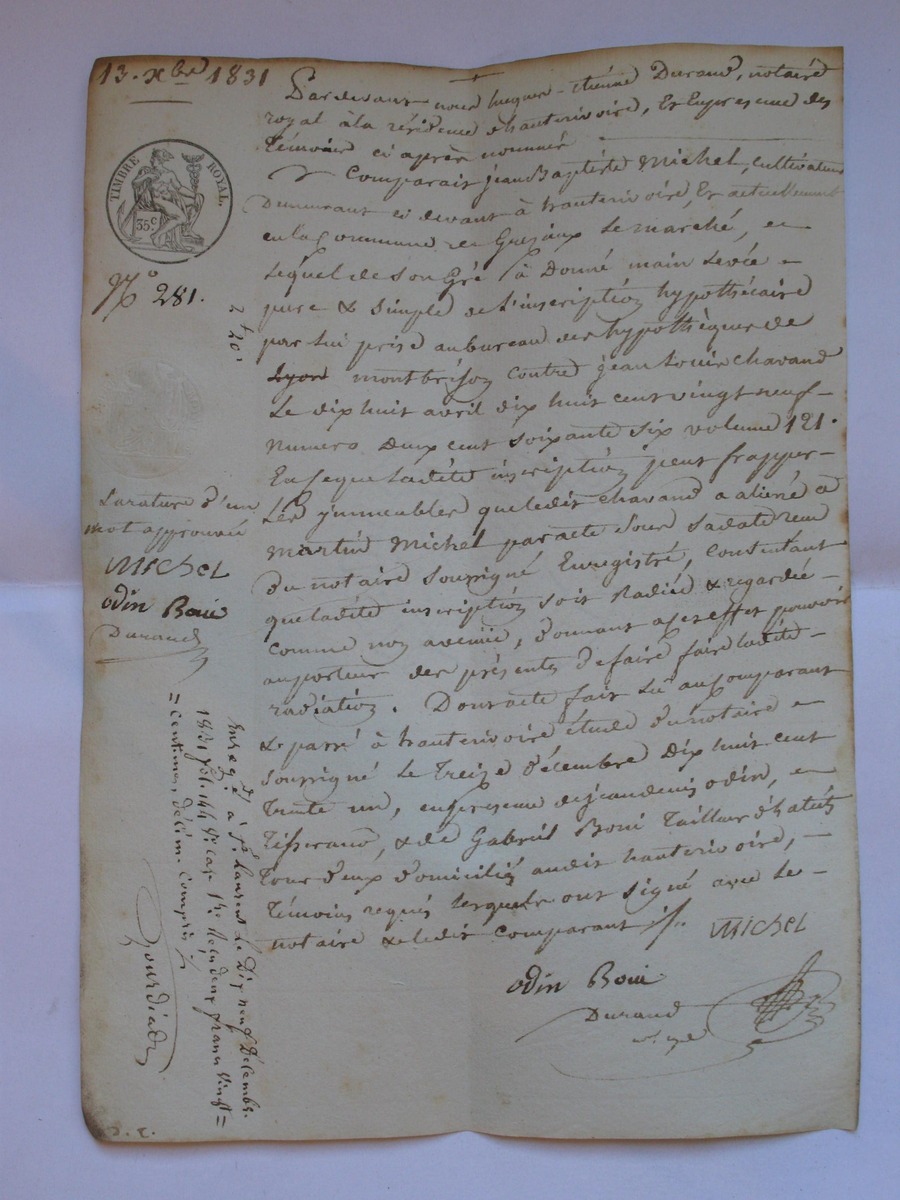 13. xbre 1831
TIMBRE ROYAL.
35 c
No 281.
2f 20c
Pardevant nous jacques-étienne Durand, notaire
royal à la résidence d'hauterivoire, Et Enpresence des
témoins ci après nommés
Comparait jeanBaptiste Michel, cultivateur
Demeurant ci devant à hauterivoire, Et actuellement
enla Commune de Grezieux Le marché, 
Lequel de Son Gré à Donné main Levée
pure & Simple de L'inscription hypothécaire
par Lui prise aubureau des hypothèques de
Lyon montbrison contre jean Louis chavand
Le dix huit avril dix huit cent vingt neuf
numero Deux cent soixante six volume 121.
Ence que Ladite inscription peut frapper
Les jmmeubles queledit chavand a aliéné à
martin Michel paracte Sous Sadate reçu
Du notaire Soussigné Enregistré, Consentant
queladite inscription soit Radiée & regardée
Comme non avenüe, donnant à ces effet pouvoir
auporteur des présentes de faire faire ladite
radiation. Dont acte fait Lu au Comparant
& passé à hauterivoire étude Dunotaire
soussigné Le Treize décembre Dix huit cent
Trente un, enpresence dejeandenis odin,
Tisserand, & de Gabriel Boni Tailleur d'habits
tous d'eux domiciliés audit hauterivoire,
Témoins requis Lesquels ont Signé avec Le
notaire & ledit comparant
Michel
odin Boni
Durand
Larature d'un
mot approuvée
Michel
odin Boni
Durand
Enregé à St Laurent Le Dix neuf Décembr.
1831 fol. 144 Vo Case 1re Reçu deux francs vingt =
= Centimes, décime compris